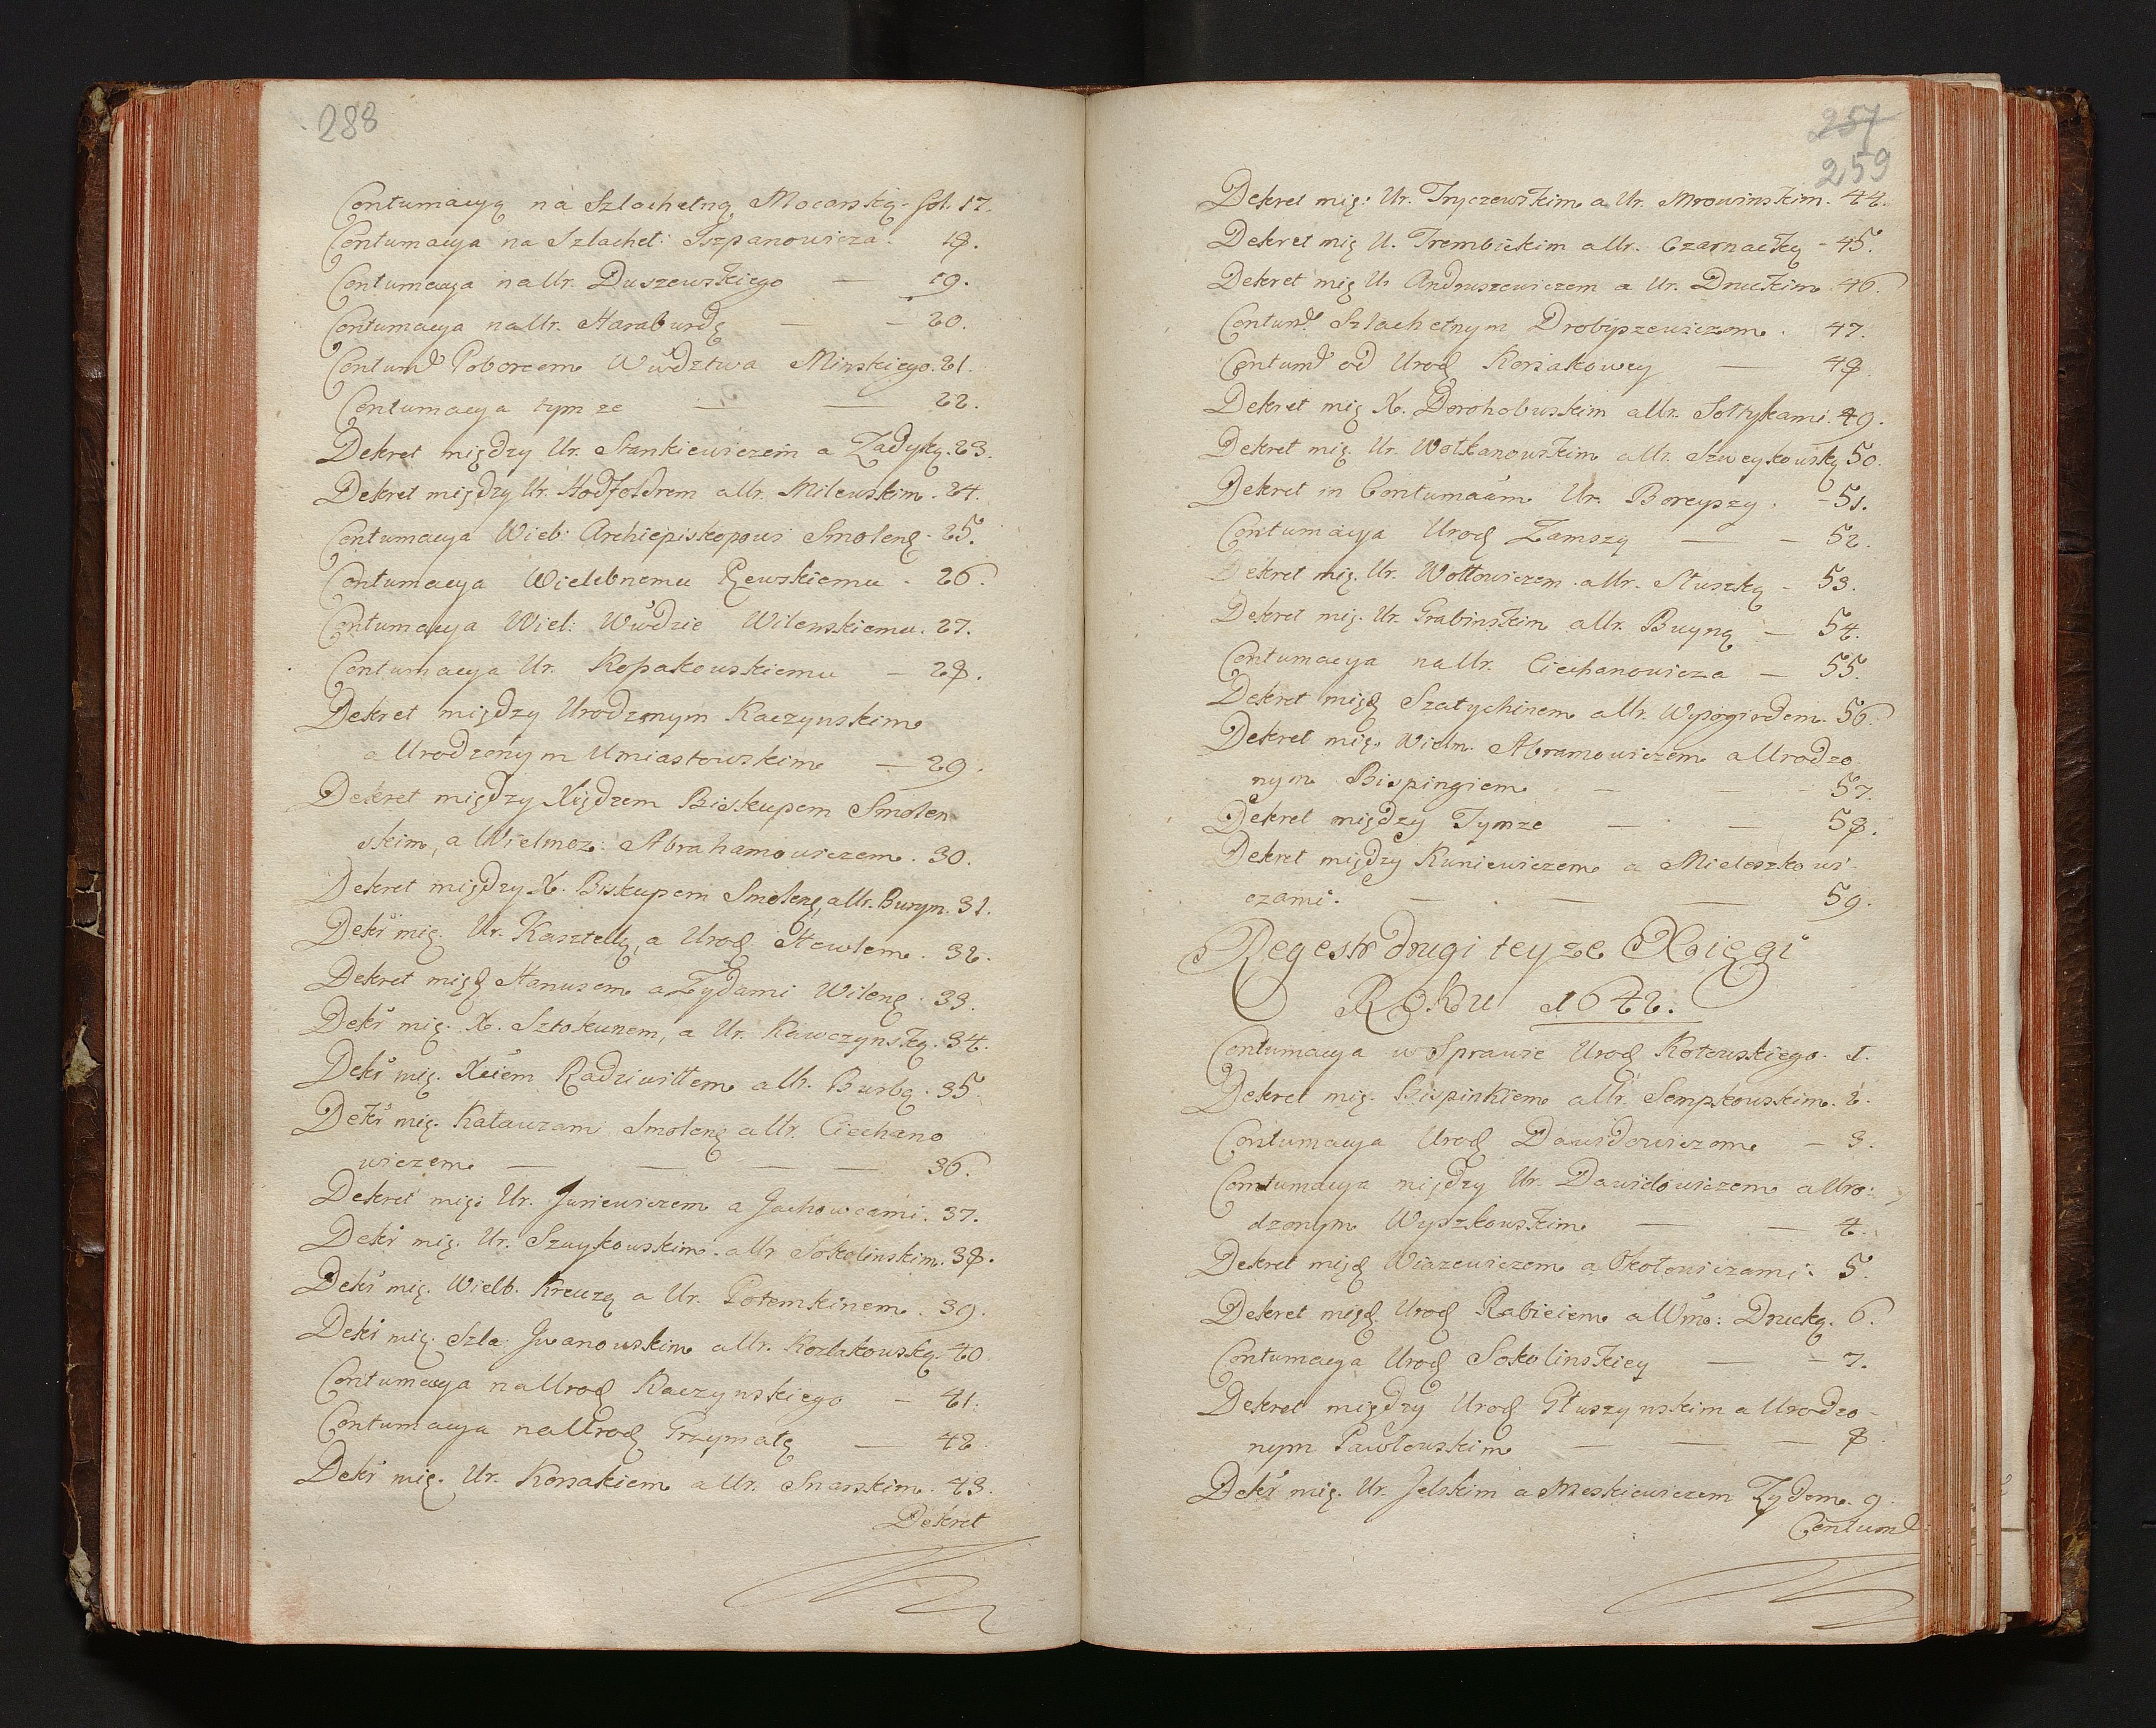 288
Contumacyą na Szlachetną Mocarską. fol. 17.
Contumacya na Szlachet: Iszpanowicza. 18.
Contumacya na Ur. Duszewskiego — 19.
Contumacya na Ur. Haraburdę — — 20.
Contumã Poborcom Wwdztwa Minskiego. 21.
Contumacya tymze — — 22.
Dekret między Ur. Stankiewiczem a Zadyką. 23.
Dekret między Ur. Hodfoldrem a Ur. Milewskim. 24.
Contumacya Wieb: Archiepiskopowi Smoleng. 25.
Contumacya Wielebnemu Rzewskiemu. 26.
Contumacya Wiel: Wwdzie Wilenskiemu. 27.
Contumacya Ur. Ropakowskiemu — 28.
Dekret między Urodzonym Kaczynskim
a Urodzonym Umiastowskim — 29.
Dekret między Xiędzem Biskupem Smolen
skim, a Wielmoz: Abrahamowiczem. 30.
Dekret między X. Biskupem Smoleng, a Ur. Burym. 31.
Dekr mię. Ur. Kasztellą, a Urod Hewlem. 32.
Dekret międ Hanusem a Zydami Wileng. 33.
Dekr mię. X. Sztokunem, a Ur. Kawczynską. 34.
Dekr mię. Xciem Radziwiłłem a Ur. Burbą. 35.
Dekr mię. Kalauzami Smoleng a Ur. Ciechano
wiczem — — — — 36.
Dekret mię: Ur. Juriewiczem a Jachowcami. 37.
Dekr mię. Ur. Szuykowskim. a Ur Sokolinskim. 38.
Dekr mię. Wielb. Kreuzą a Ur. Potemkinem. 39.
Dekr mię. Szla: Jwanowskim a Ur. Kozlakowską. 40.
Contumacya na Urod Kaczynskiego — 41.
Contumacya na Urod Grzymałę — 42.
Dekr mię. Ur. Korsakiem a Ur. Snarskim. 43.
Dekret
257
259
Dekret mię: Ur. Tryczewskim a Ur. Mrowinskim. 44.
Dekret mię U. Trembickim a Ur. Czarnacką - 45.
Dekret mię Ur Andruszewiczem a Ur. Druckim. 46.
Contumã Szlachetnym Drobyszewiczom. 47.
Contumã od Urod Korsakowey — 48.
Dekret mię X. Dorohobuskim a Ur. Sołtykami. 49.
Dekret mię. Ur. Wołkanowskim a Ur. Szweykowską 50.
Dekret in Contumaciam Ur. Boreyszy. - 51.
Contumacya Urod Zamszy — - 52.
Dekret mię. Ur. Wołłowiczem a Ur. Słuszką - 53.
Dekret mię. Ur. Grabinskim a Ur. Buyną — 54.
Contumacya na Ur. Ciechanowicza — 55.
Dekret międ Szatychinem a Ur. Wysogirdem. 56.
Dekret mię. Wielm. Abramowiczem a Urodzo
nym Bispingiem — — 57.
Dekret między Tymze — — 58.
Dekret między Kuniewiczem a Mieleszkowi-
czami. — — — 59.
Regestr drugi teyze Xięgi
Roku 1642.
Contumacya w Sprawie Urod Kotowskiego. 1.
Dekret mię. Bispinkiem a Ur. Sempkowskim. 2.
Contumacya Urod Dawidowiczom — 3.
Contumacya między Ur. Dawidowiczem a Uro:
dzonym Wyszkowskim — — 4.
Dekret międ Wiazewiczem a Okołowiczami. 5.
Dekret międ Urod Rabieiem a Wm: Drucką. 6.
Contumacya Urod Sokolinskiey — - 7.
Dekret między Urod Głuszynskim a Urodzo-
nym Pawłowskim — — — 8.
Dekr mię. Ur. Jelskim a Moskiewiczem Zydem. 9.
Contumã